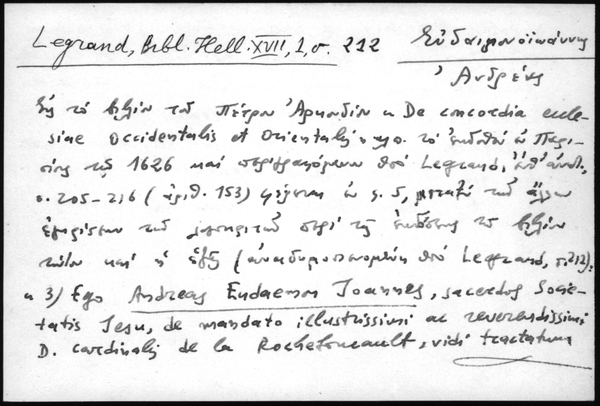 Legrand, Bibl. Hell. XVII, 1, σ. 212 Εὐδαιμονοϊωάννης
Ἀνδρέας
Εἰς τὸ βιβλίον τοῦ Πέτρου Ἀρκουδίου « De concordia eccle-
siae occidentalis et orientalis » τὸ ἐκδοθὲν ἐν Παρι-
σίοις τῷ 1626 καὶ περιγραφόμενον ὑπὸ Legrand,
σ. 205-216 (ἀριθ. 153) ἐν σ. 5, μεταξὺ τῶν ἄλλων
ἐγκρίσεων τῶν περὶ τῆς ἐκδόσεως τοῦ βιβλίου
καὶ ἡ ἑξῆς (ἀναδημοσιευομένη ὑπὸ Legrand, σ. 212):
« 3) Ego Andreas Eudaemon Joannes, sacerdos Socie-
tatis Jesu, de mandato illustrissimi ac reverendissimi
D. cardinalis de la Rochefoucault, vidi tractatum